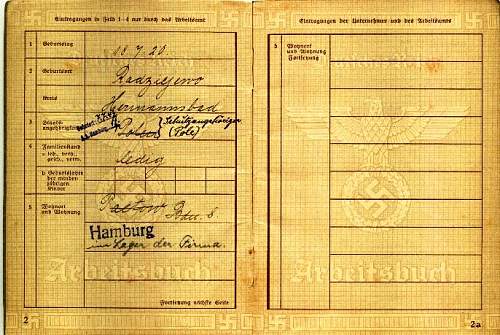 Eintragungen in Feld 1–4 nur durch das Arbeitsamt
1 Geburtstag 18.7.20.
2 Geburtsort Radziejewo
Kreis Hermannsbad
3 Staats-
angehörigkeit Polen Schutzangehöriger
(Pole)
4 Familienstand
led., verh.,
gesch., verw. ledig
b Geburtsjahre
der minder-
jährigen
Kinder
5 Wohnort
und Wohnung
Hamburg
im Lager der Firma.
Arbeitsbuch
Fortsetzung nächste Seite
2
Eintragungen der Unternehmer und des Arbeitsamts
5 Wohnort
und Wohnung
Fortsetzung
Arbeitsbuch
2a